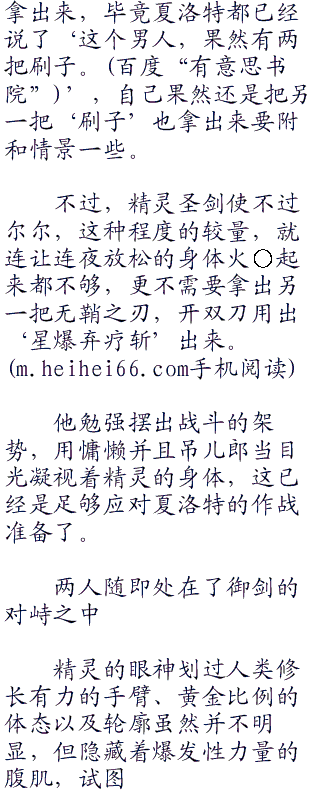 拿出来，毕竟夏洛特都已经
说了‘这个男人，果然有两
把刷子。(百度“有意思书
院”)’，自己果然还是把另
一把‘刷子’也拿出来要附
和情景一些。
不过，精灵圣剑使不过
尔尔，这种程度的较量，就
连让连夜放松的身体火〇起
来都不够，更不需要拿出另
一把无鞘之刃，开双刀用出
‘星爆弃疗斩’出来。
(m.heihei66.com手机阅读)
他勉强摆出战斗的架
势，用慵懒并且吊儿郎当目
光凝视着精灵的身体，这已
经是足够应对夏洛特的作战
准备了。
两人随即处在了御剑的
对峙之中
精灵的眼神划过人类修
长有力的手臂、黄金比例的
体态以及轮廓虽然并不明
显，但隐藏着爆发性力量的
腹肌，试图